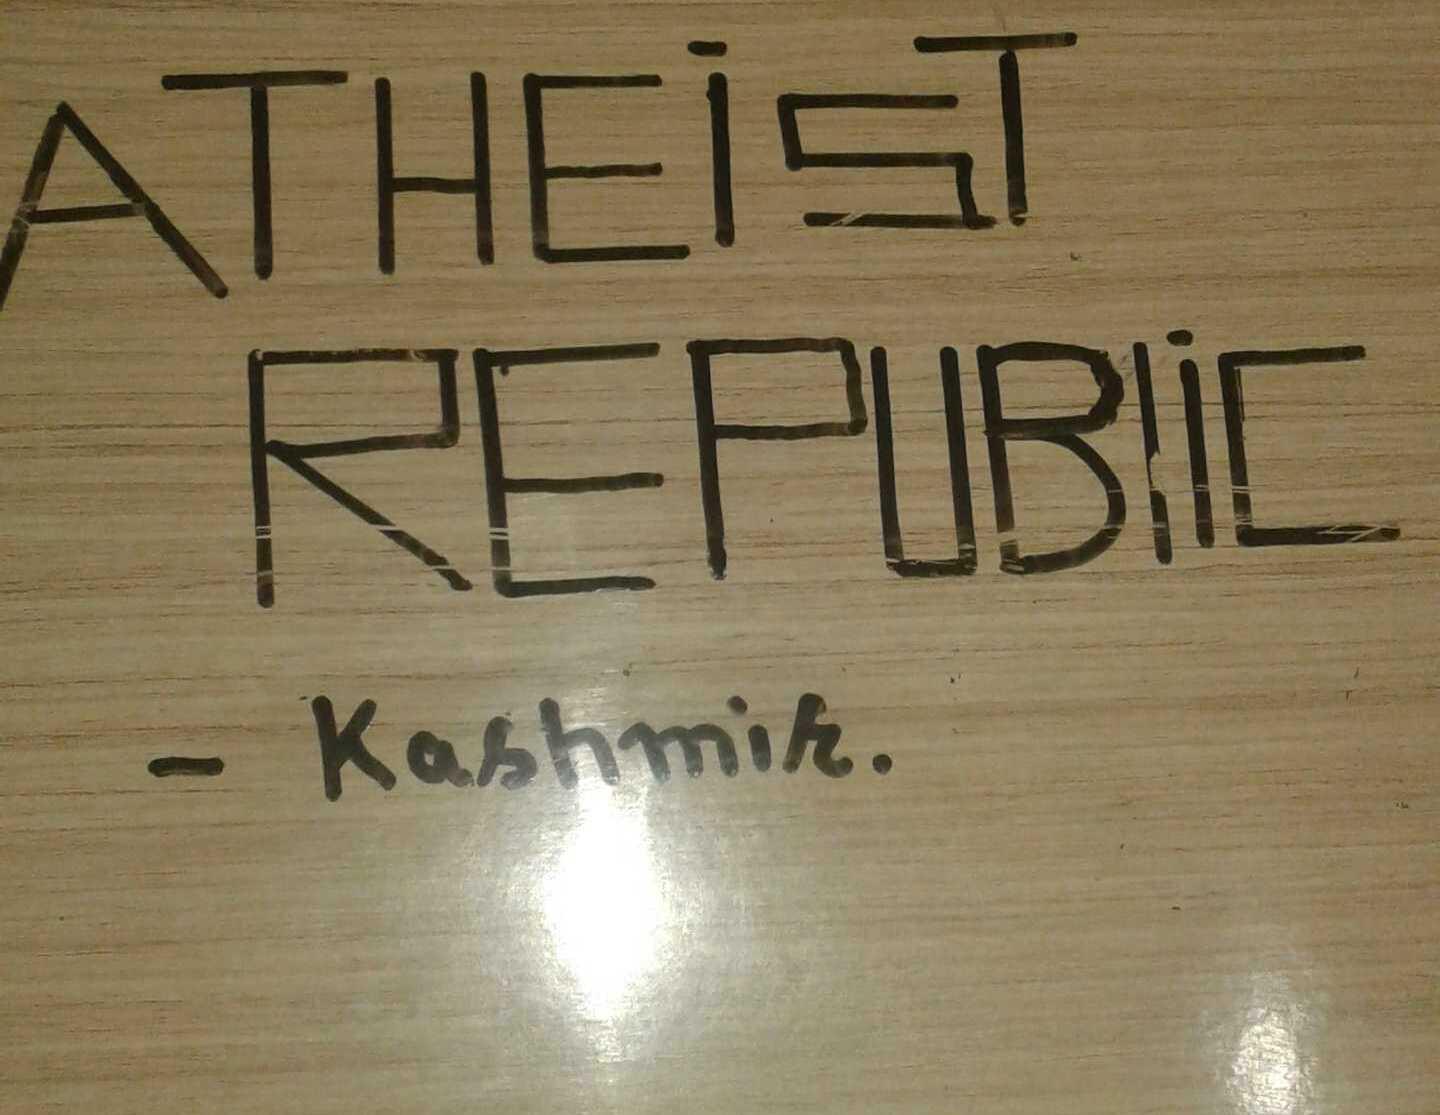 ATHEiST
REPUBliC
- Kashmir.